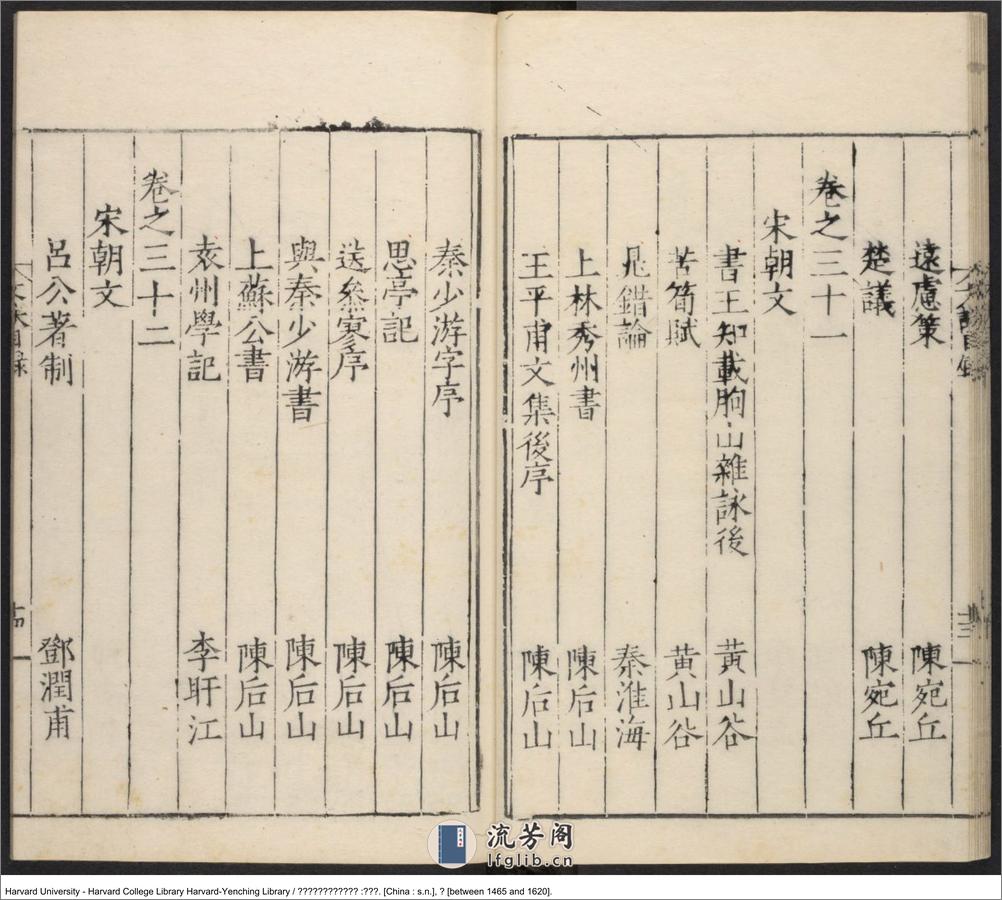 遠慮策 陳宛丘
楚議 陳宛丘
卷之三十一
宋朝文
書王知載朐山雜詠後 黃山谷
苦筍賦 黃山谷
晁錯論 秦淮海
上林秀州書 陳后山
王平甫文集後序 陳后山
秦少游字序 陳后山
思亭記 陳后山
送叅寥序 陳后山
與秦少游書 陳后山
上蘇公書 陳后山
袁州學記 李盱江
卷之三十二
宋朝文
呂公著制 鄧潤甫
流芳阁
lfglib.cn
Harvard University - Harvard College Library Harvard-Yenching Library / ???????????? :???. [China : s.n.], ? [between 1465 and 1620].